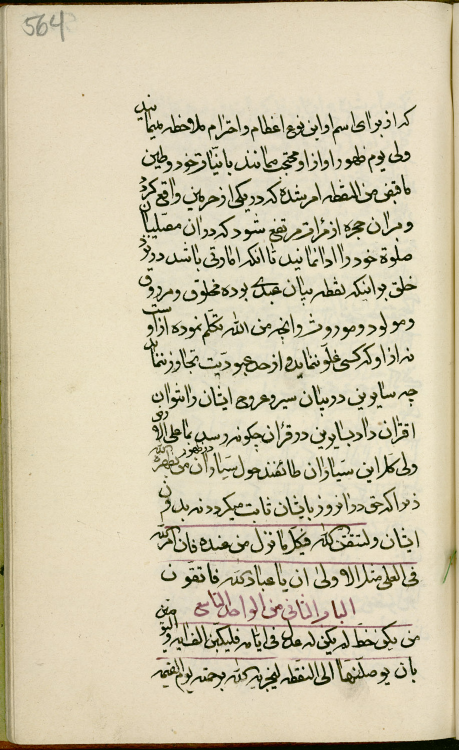 564
که از برای اسم او این نوع اعظام و احترام ملاحظه مینمایند
ولی یوم ظهور او از او محتجب میمانند با نیاز خود وطین
ما قبض من النقطه امر شده که در یکی از حرمین واقع گردد
و بر آن حجره از مرآت مرتفع شود که در آن مصلیان
صلوة خود را ادا نمایند تا آنکه امارتی باشد در نزد
خلق بر اینکه نقطه بیان عبدی بوده مخلوق و مرزوق
و مولود و موروث و آنچه من الله تکلم نموده از اوست
نه از او که کسی غلو ننماید و از حد عبودیت تجاوز ننماید
چه سایرین در بیان سیر و عروج ایشان را نتوان
اقتران داد بسایرین در قرآن چگونه رسد بما علی الارض
ولی کل این سیاران طائفند حول سیاران من یظهره الله در ظهور
زیرا که حق در آنروز بایشان ثابت میگردد نه بدون
ایشان ولتتقن الله فیکل ما نزل من عنده فان امر الله
فی العلی مثل الاولی ان یا عباد الله فاتقون
الباب الثانی من الواحد التاسع
من یکن خط له یکن له عدل فی ایامه
بان یوصلنها الی النقطه لیجزیه الله برحمته یوم القیمه